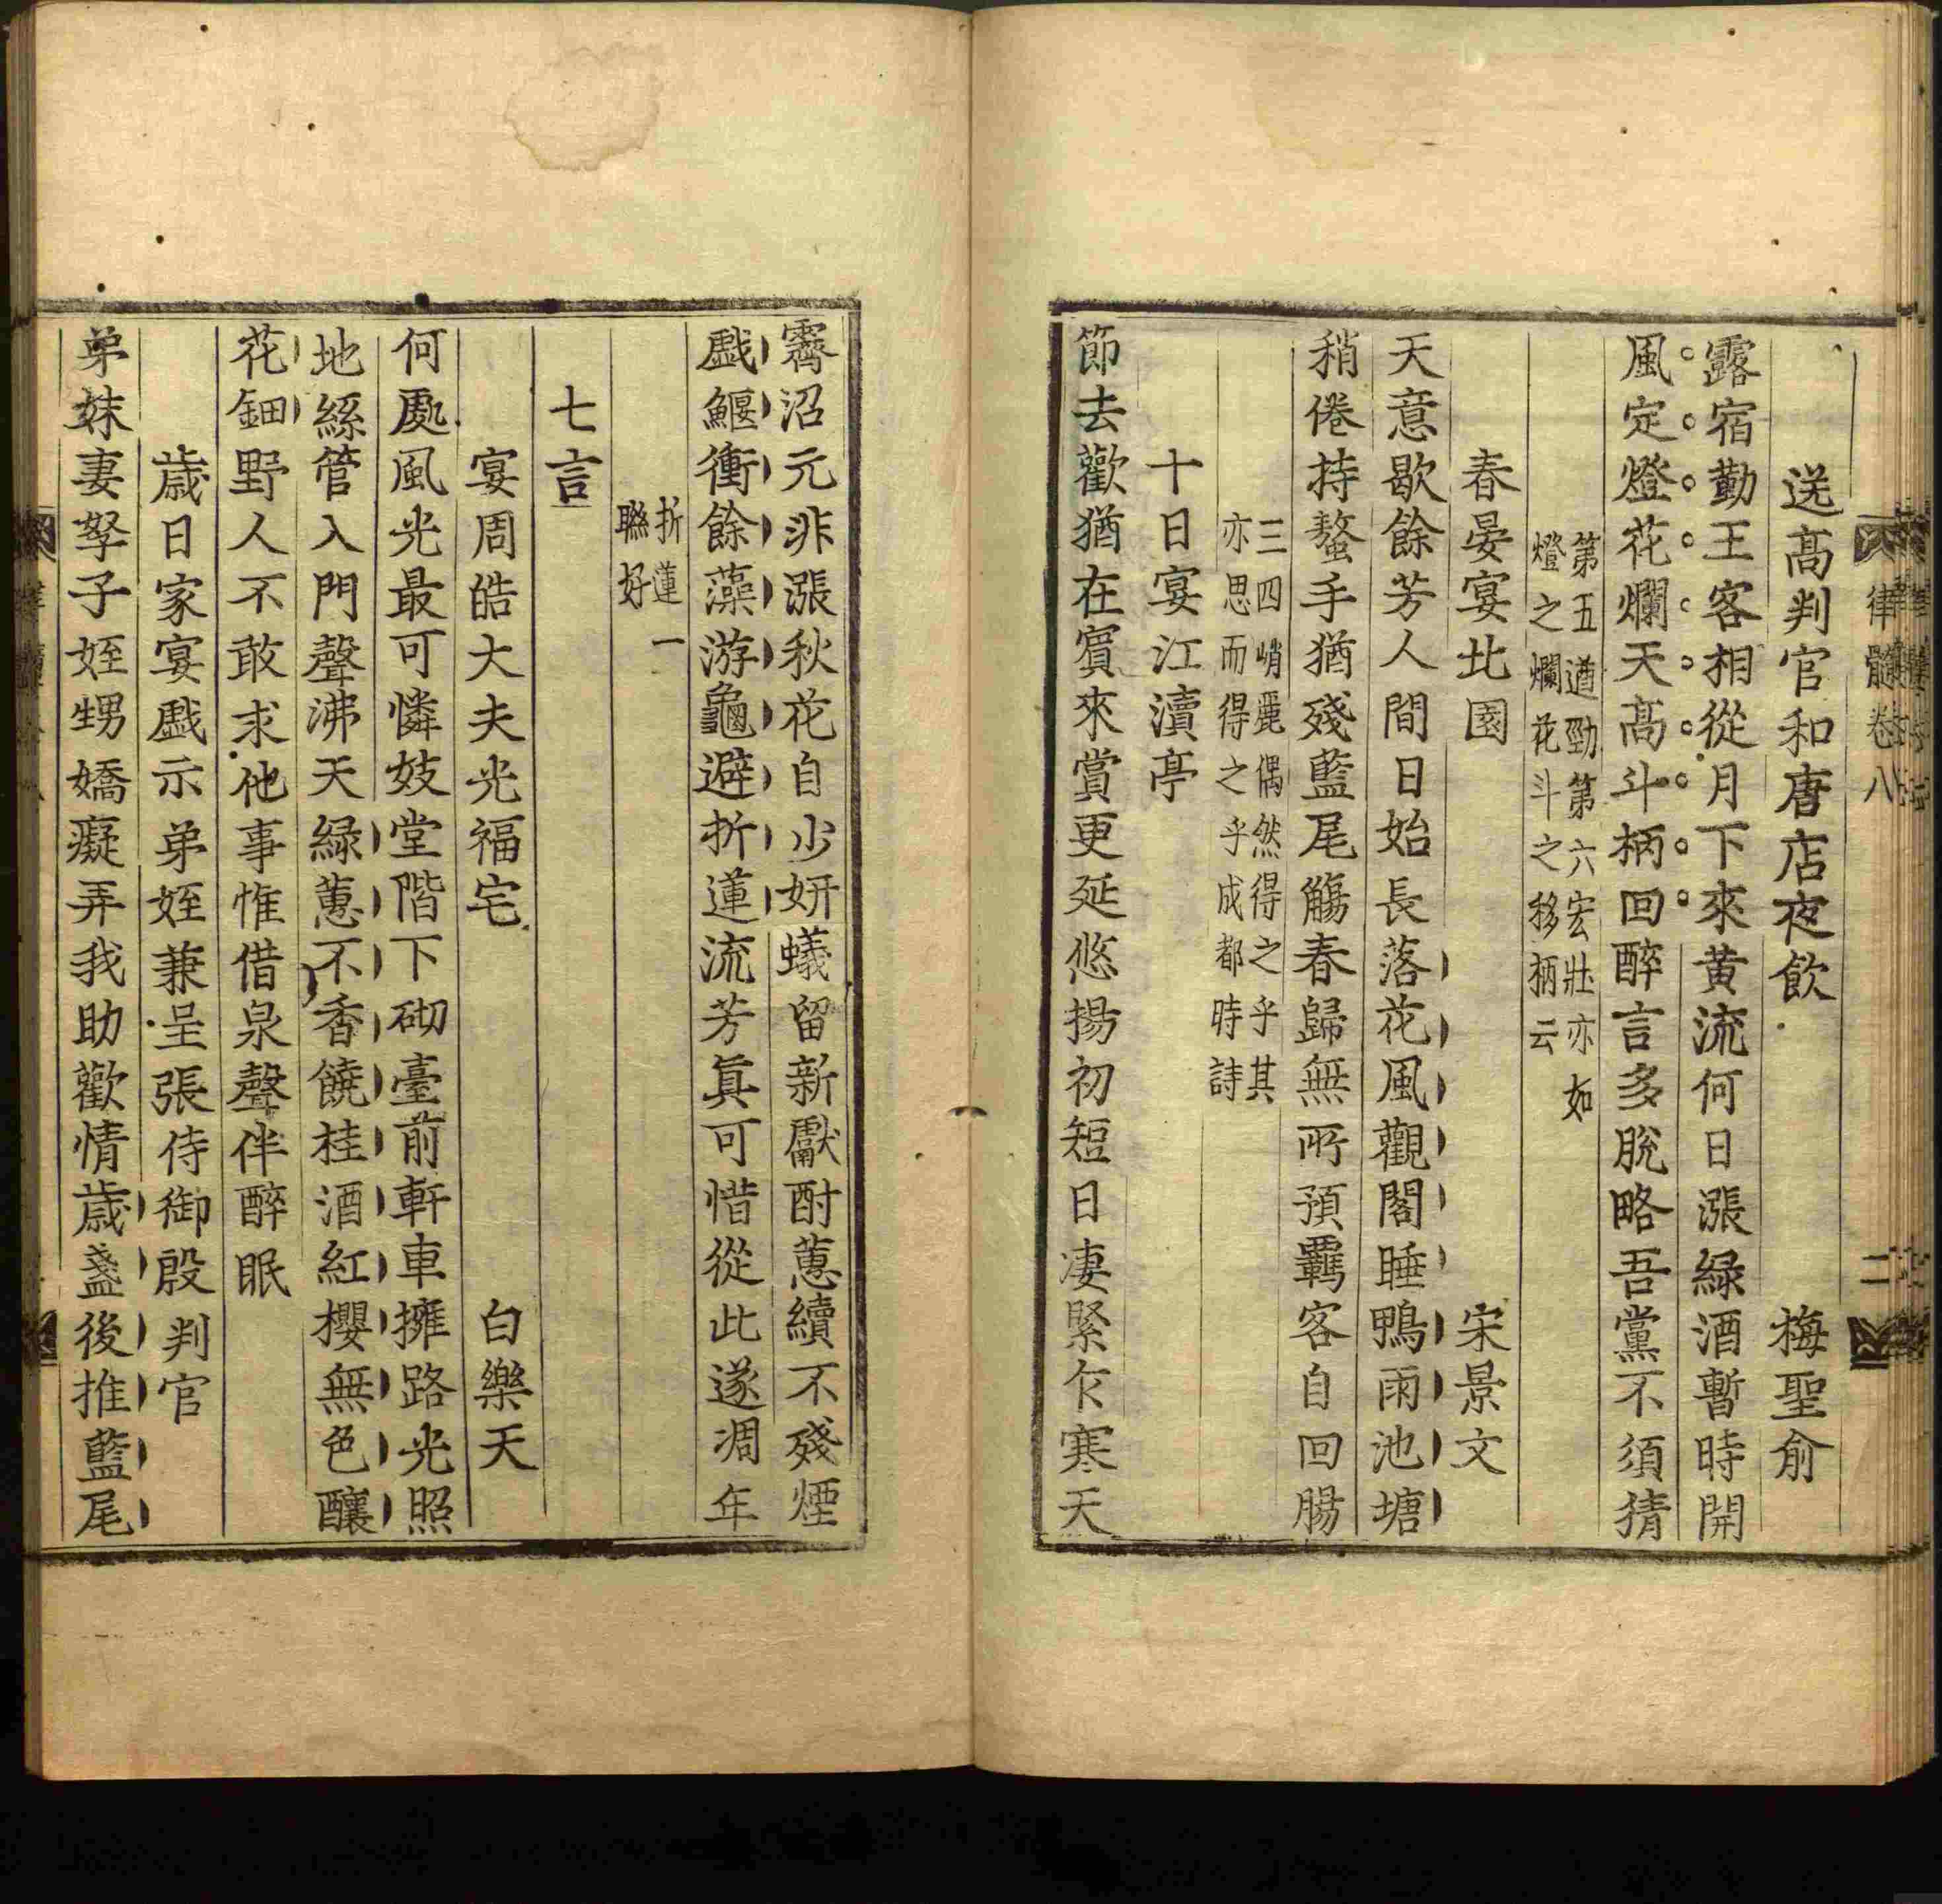 律髓卷八
二
送高判官和唐店夜飲　梅聖俞
露宿勤王客相從月下來黄流何日漲緑酒暫時開
風定燈花爛天高斗柄回醉言多脫略吾黨不須猜
第五遒勁第六宏壯亦如
燈之爛花斗之移柄云
春晏宴北園　宋景文
天意歇餘芳人間日始長落花風觀閣睡鴨雨池塘
稍倦持螯手猶殘藍尾觴春歸無所預羈客自回腸
三四峭麗偶然得之乎其
亦思而得之乎成都時詩
十日宴江瀆亭
節去歡猶在賓來賞更延悠揚初短日凄緊乍寒天
霽沼元非漲秋花自少妍蟻留新獻酎蔥續不殘煙
戲鰋衝餘藻游龜避折蓮流芳眞可惜從此遂凋年
折蓮一
聮好
七言
宴周皓大夫光福宅　白樂天
何處風光最可憐妓堂階下砌臺前軒車擁路光照
地絲管入門聲沸天緑蕙不香饒桂酒紅櫻無色釀
花鈿野人不敢求他事惟借泉聲伴醉眠
歲日家宴戲示弟姪兼呈張侍御殷判官
弟妹妻孥子姪甥嬌癡弄我助歡情歲盞後推藍尾